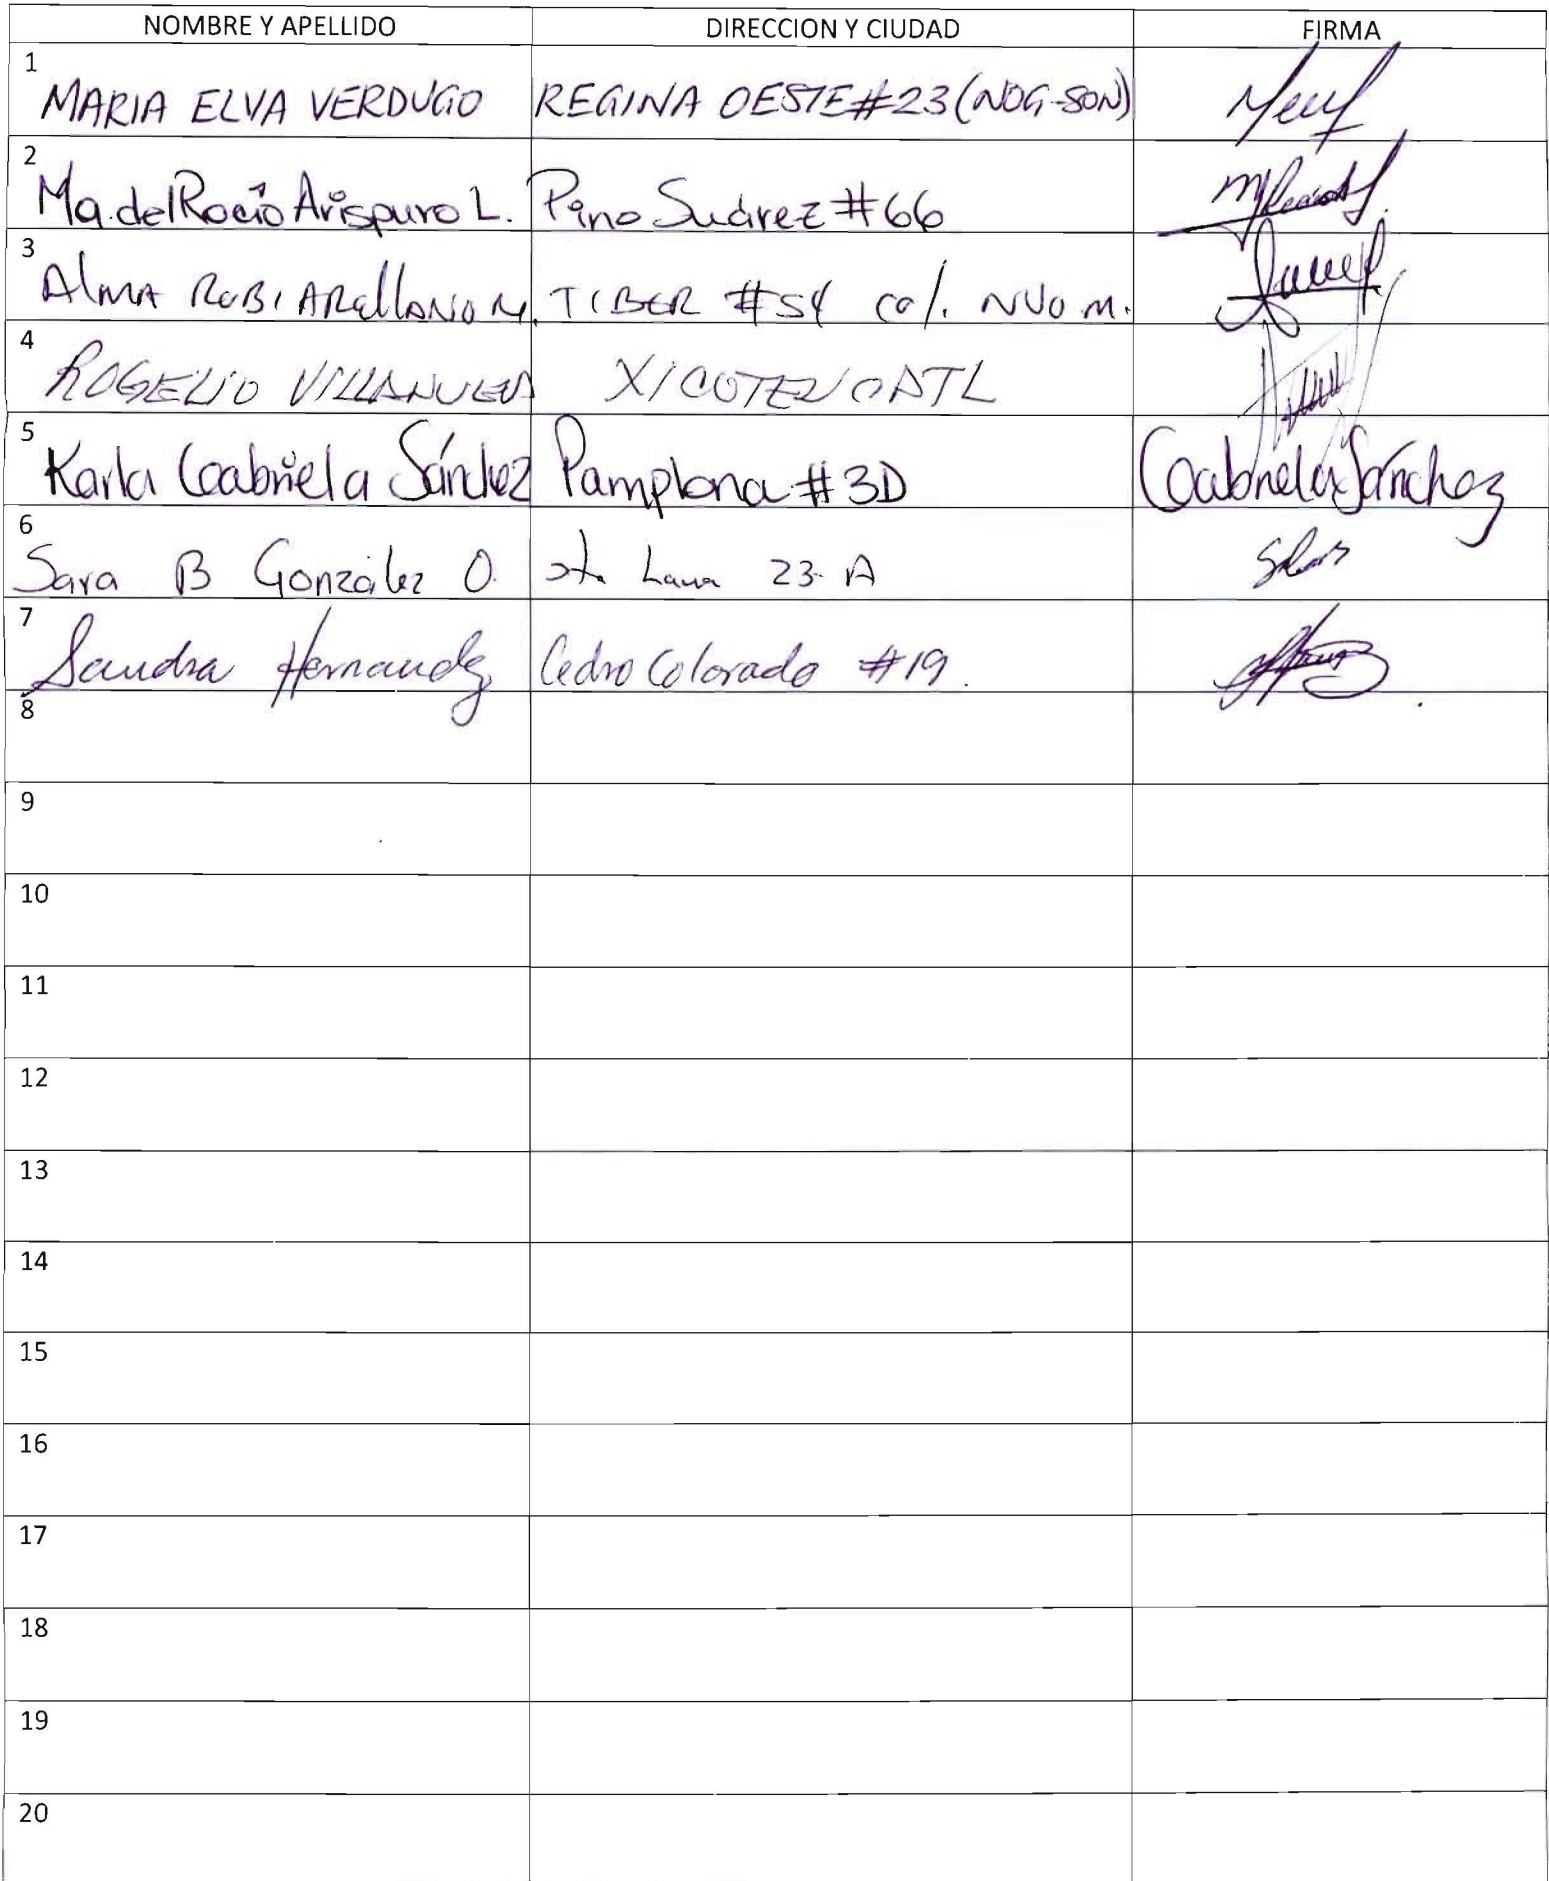 NOMBRE Y APELLIDO DIRECCION Y CIUDAD FIRMA
1 MARIA ELVA VERDUGO REGINA OESTE #23 (NOG-SON)
2 Ma. del Rocío Arispuro L. Pino Suárez #66
3 AlMA RUBI ARellANO M. TIBER #54 col. NVO M.
4 ROGELIO VILLANUEVA XICOTENCATL
5 Karla Gabriela Sánchez Pamplona #3D Gabriela Sánchez
6 Sara B González O. 23-A
7 Sandra Hernandez Cedro Colorado #19.
8
9
10
11
12
13
14
15
16
17
18
19
20